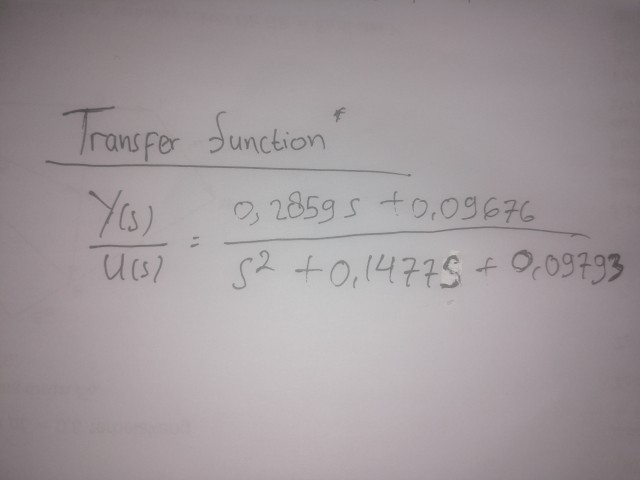 Transfer function*
Y(s)/U(s) = (0,2859s + 0,09676)/(s² + 0,1477s + 0,09793)